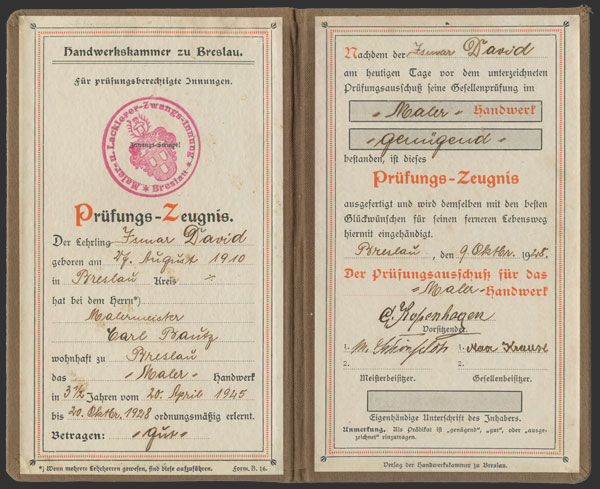 Handwerkskammer zu Breslau.
Für prüfungsberechtigte Innungen.
Maler- u. Lackierer-Zwangs-Innung
Innungs-Stempel
* Breslau *
Prüfungs-Zeugnis.
Der Lehrling Ismar David
geboren am 27. August 1910
in Breslau Kreis
hat bei dem Herrn*)
Malermeister
Carl Bautz
wohnhaft zu Breslau
das "Maler" Handwerk
in 3½ Jahren vom 20. April 1925
bis 20. Oktbr. 1928 ordnungsmäßig erlernt.
Betragen: "gut"
*) Wenn mehrere Lehrherren gewesen, sind diese aufzuführen. Form. B. 16.
Nachdem der Ismar David
am heutigen Tage vor dem unterzeichneten
Prüfungsausschuß seine Gesellenprüfung im
"Maler" Handwerk
"Genügend"
bestanden, ist dieses
Prüfungs-Zeugnis
ausgefertigt und wird demselben mit den besten
Glückwünschen für seinen ferneren Lebensweg
hiermit eingehändigt.
Breslau, den 9. Oktbr. 1928.
Der Prüfungsausschuß für das
"Maler" Handwerk
C. Kopenhagen
Vorsitzender.
1. M. Schönfeld 1. Max Krause
2. 2.
Meisterbeisitzer. Gesellenbeisitzer.
Eigenhändige Unterschrift des Inhabers.
Anmerkung. Als Prädikat ist „genügend", „gut", oder „ausge-
zeichnet" einzutragen.
Verlag der Handwerkskammer zu Breslau.